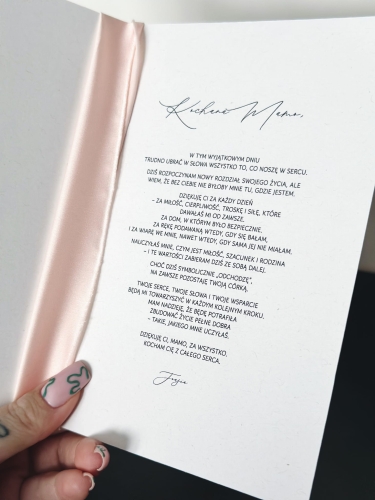 Kochana Mamo,
W TYM WYJĄTKOWYM DNIU
TRUDNO UBRAĆ W SŁOWA WSZYSTKO TO, CO NOSZĘ W SERCU.
DZIŚ ROZPOCZYNAM NOWY ROZDZIAŁ SWOJEGO ŻYCIA, ALE
WIEM, ŻE BEZ CIEBIE NIE BYŁOBY MNIE TU, GDZIE JESTEM.
DZIĘKUJĘ CI ZA KAŻDY DZIEŃ
– ZA MIŁOŚĆ, CIERPLIWOŚĆ, TROSKĘ I SIŁĘ, KTÓRE
DAWAŁAŚ MI OD ZAWSZE.
ZA DOM, W KTÓRYM BYŁO BEZPIECZNIE,
ZA RĘKĘ PODAWANĄ WTEDY, GDY SIĘ BAŁAM,
I ZA WIARĘ WE MNIE, NAWET WTEDY, GDY SAMA JEJ NIE MIAŁAM.
NAUCZYŁAŚ MNIE, CZYM JEST MIŁOŚĆ, SZACUNEK I RODZINA
– I TE WARTOŚCI ZABIERAM DZIŚ ZE SOBĄ DALEJ.
CHOĆ DZIŚ SYMBOLICZNIE „ODCHODZĘ",
NA ZAWSZE POZOSTAJĘ TWOJĄ CÓRKĄ.
TWOJE SERCE, TWOJE SŁOWA I TWOJE WSPARCIE
BĘDĄ MI TOWARZYSZYĆ W KAŻDYM KOLEJNYM KROKU.
MAM NADZIEJĘ, ŻE BĘDĘ POTRAFIŁA
ZBUDOWAĆ ŻYCIE PEŁNE DOBRA
– TAKIE, JAKIEGO MNIE UCZYŁAŚ.
DZIĘKUJĘ CI, MAMO, ZA WSZYSTKO.
KOCHAM CIĘ Z CAŁEGO SERCA,